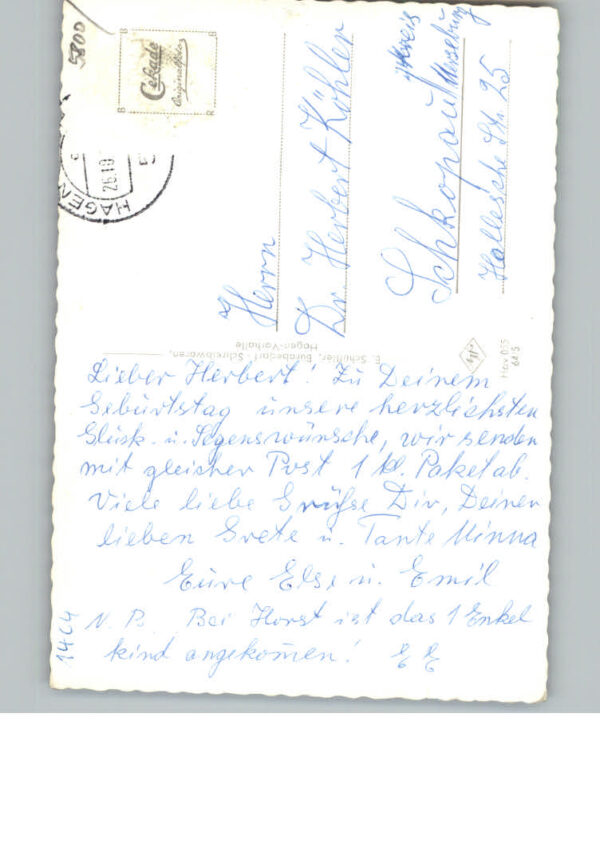 5800
Cekade
Originalfoto
B
R
B
R
HAGEN
26.19
Herrn
Dr. Herbert Köhler
Schkopau
Kreis
Merseburg
Hallesche Str. 25
E. Schüffler, Bürobedarf - Schreibwaren,
Hagen-Vorhalle
Hav 055
64 S
Lieber Herbert! Zu Deinem
Geburtstag unsere herzlichsten
Glück- u. Segenswünsche, wir senden
mit gleicher Post 1 kl. Paket ab.
Viele liebe Grüße Dir, Deiner
lieben Grete u. Tante Minna
Eure Else u. Emil
N. B. Bei Horst ist das 1 Enkel
kind angekom̄en! E E
1464